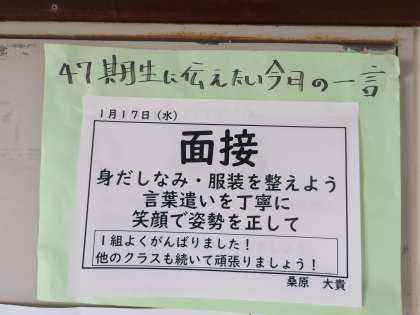 47期生に伝えたい今日の一言
1月17日(水)
面接
身だしなみ・服装を整えよう
言葉遣いを丁寧に
笑顔で姿勢を正して
1組よくがんばりました!
他のクラスも続いて頑張りましょう!
桑原 大貴